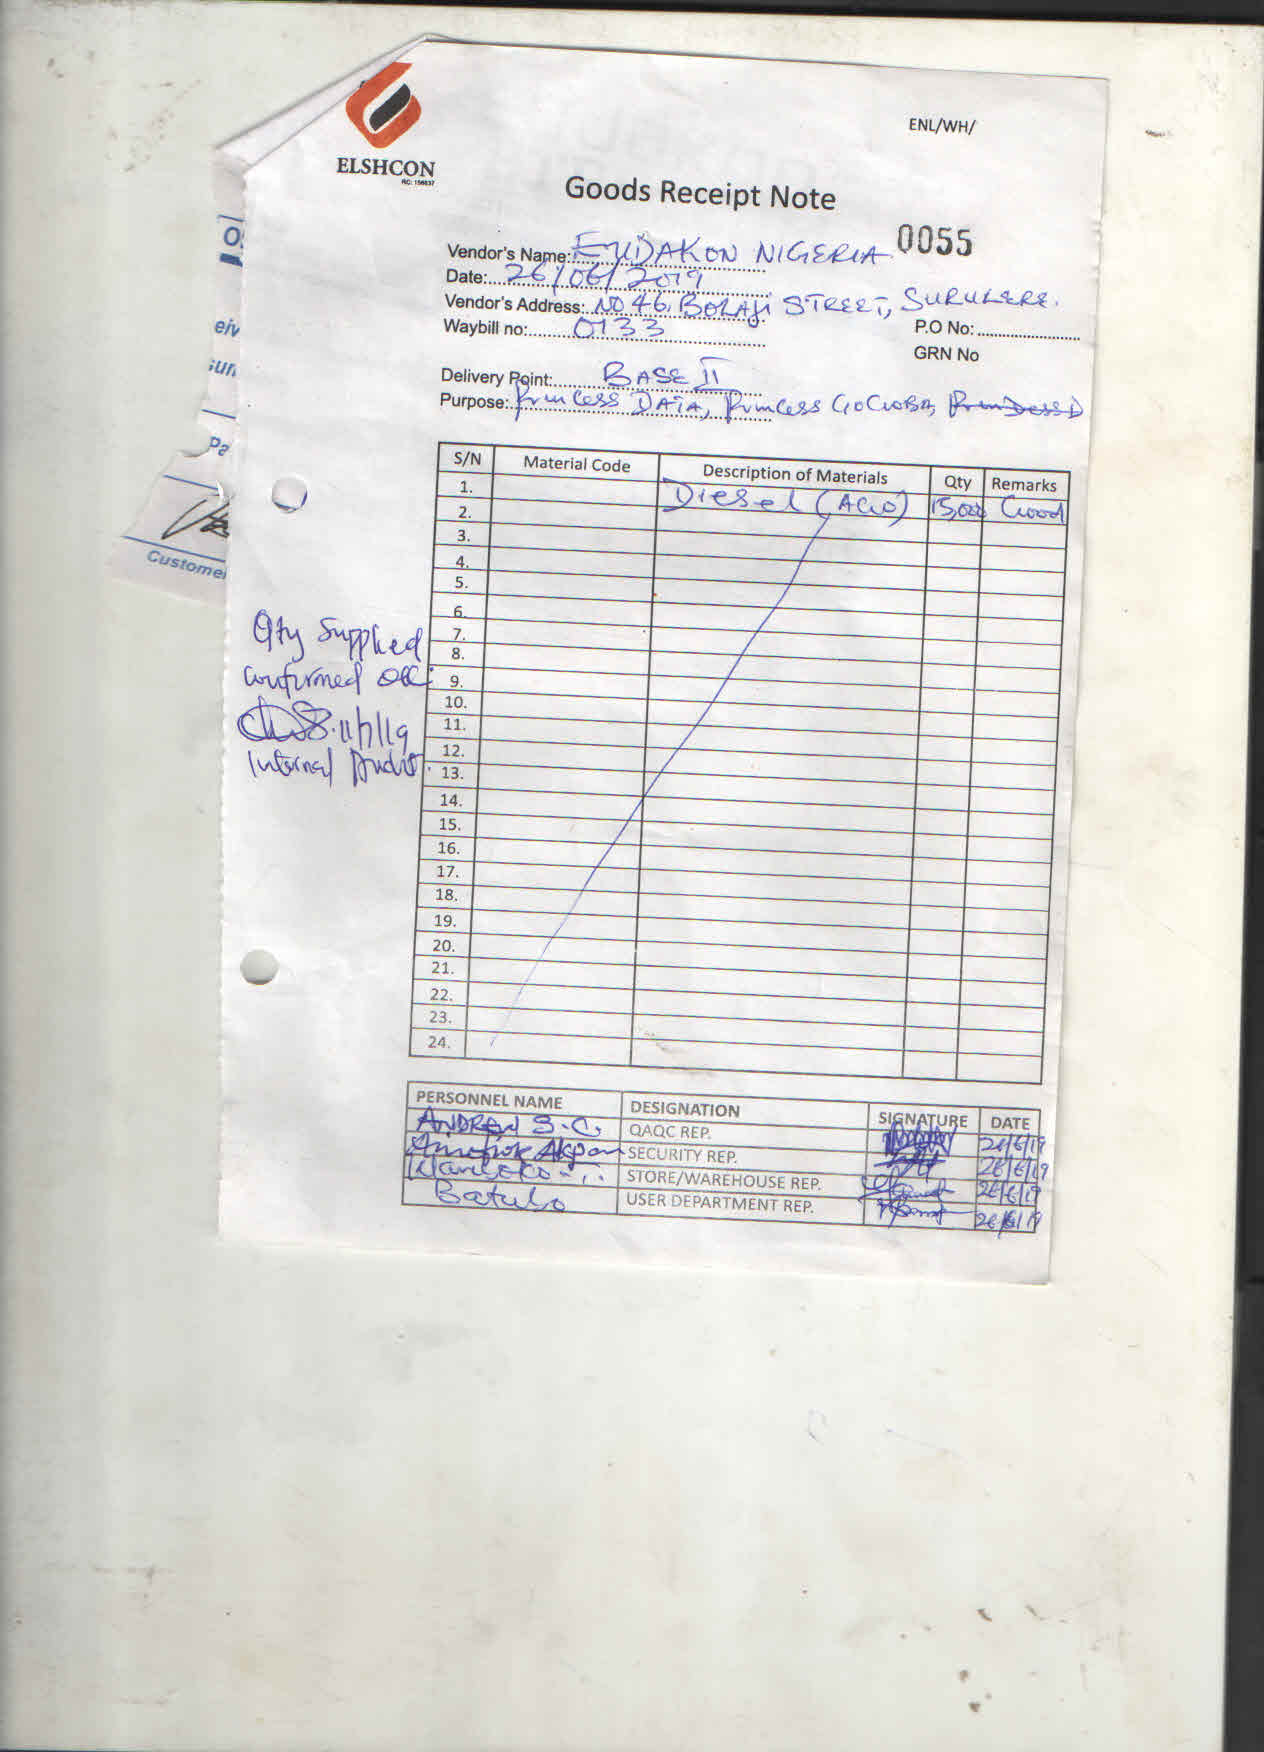 ELSHCON
RC: 156837
ENL/WH/
Goods Receipt Note
0055
Vendor's Name: EYIDAKON NIGERIA
Date: 26/06/2019
Vendor's Address: NO 46, BOLAJI STREET, SURULERE.
Waybill no: 0133
P.O No:
GRN No
Delivery Point: BASE II
Purpose: Princess DATA, Princess
S/N Material Code Description of Materials Qty Remarks
1. Diesel (AGO) 15,000 Good
2.
3.
4.
5.
6.
7.
8.
9.
10.
11.
12.
13.
14.
15.
16.
17.
18.
19.
20.
21.
22.
23.
24.
Qty Supplied
confirmed
11/7/19
Internal Audit
PERSONNEL NAME DESIGNATION SIGNATURE DATE
ANDREW S.C. QAQC REP. 26/6/19
Akpan SECURITY REP. 26/6/19
STORE/WAREHOUSE REP. 26/6/19
Batubo USER DEPARTMENT REP. 26/6/19
Customer